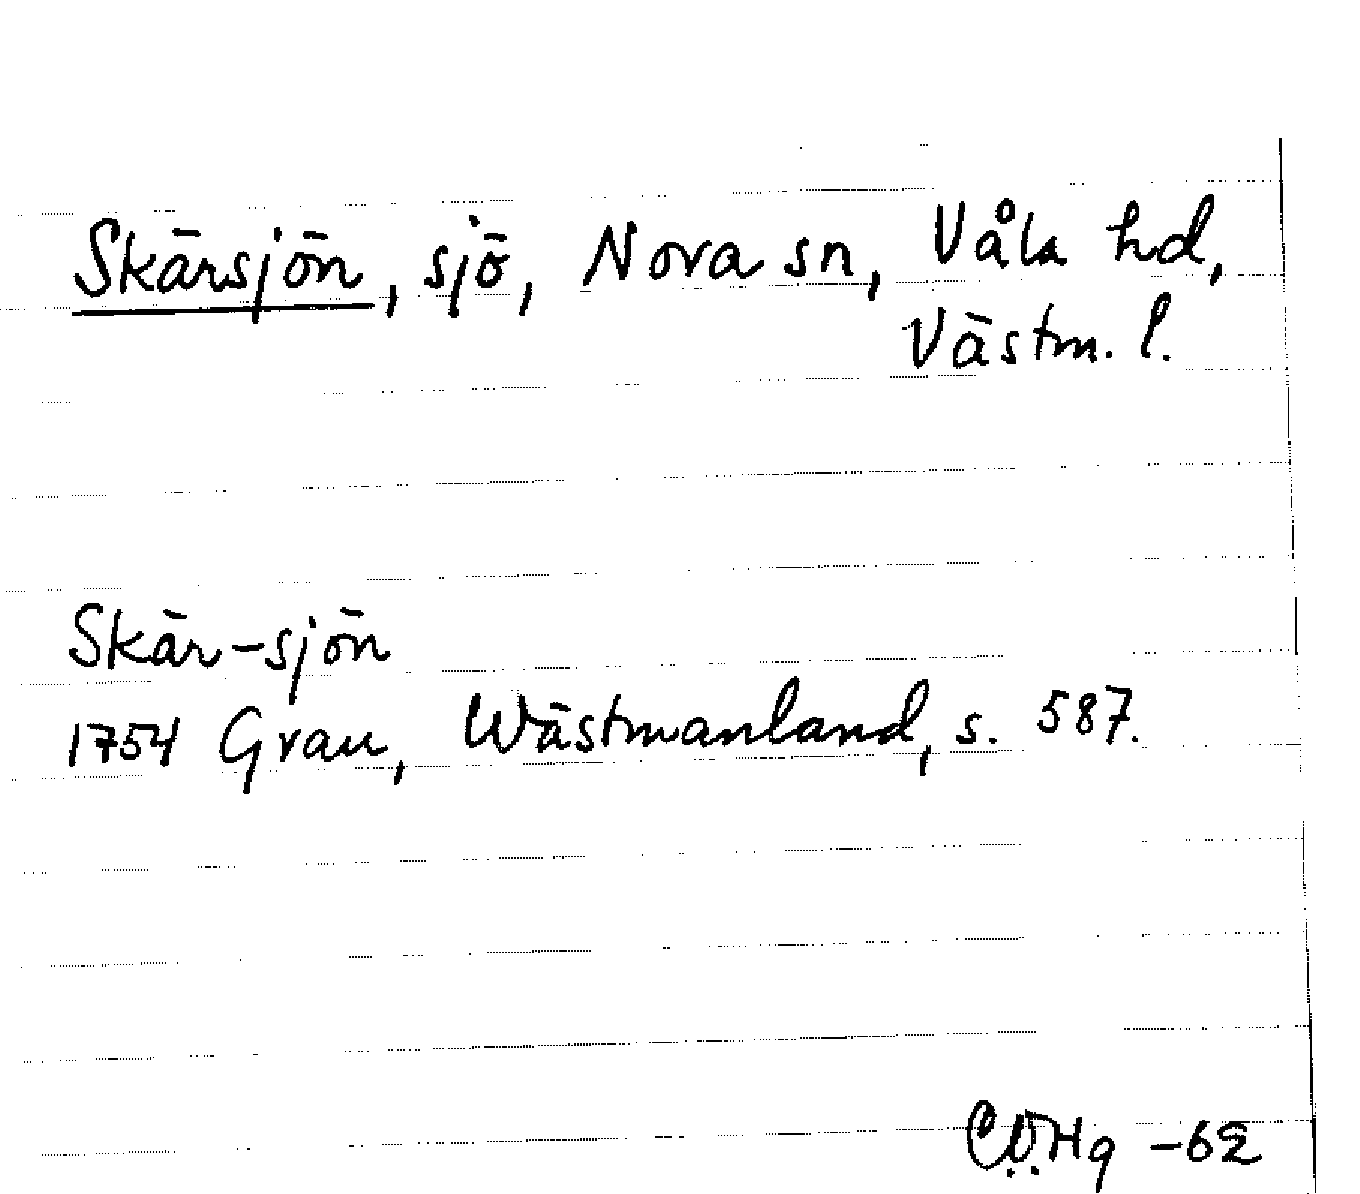 Skärsjön, sjö, Nora sn, Våla hd,
Västm. l.
Skär-sjön
1754 Grau, Wästmanland, s. 587.
-62